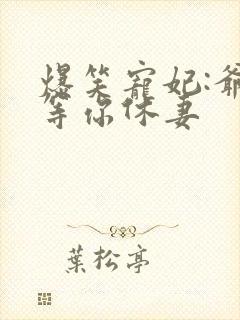 爆笑寵妃:爺
等你休妻
葉松亭